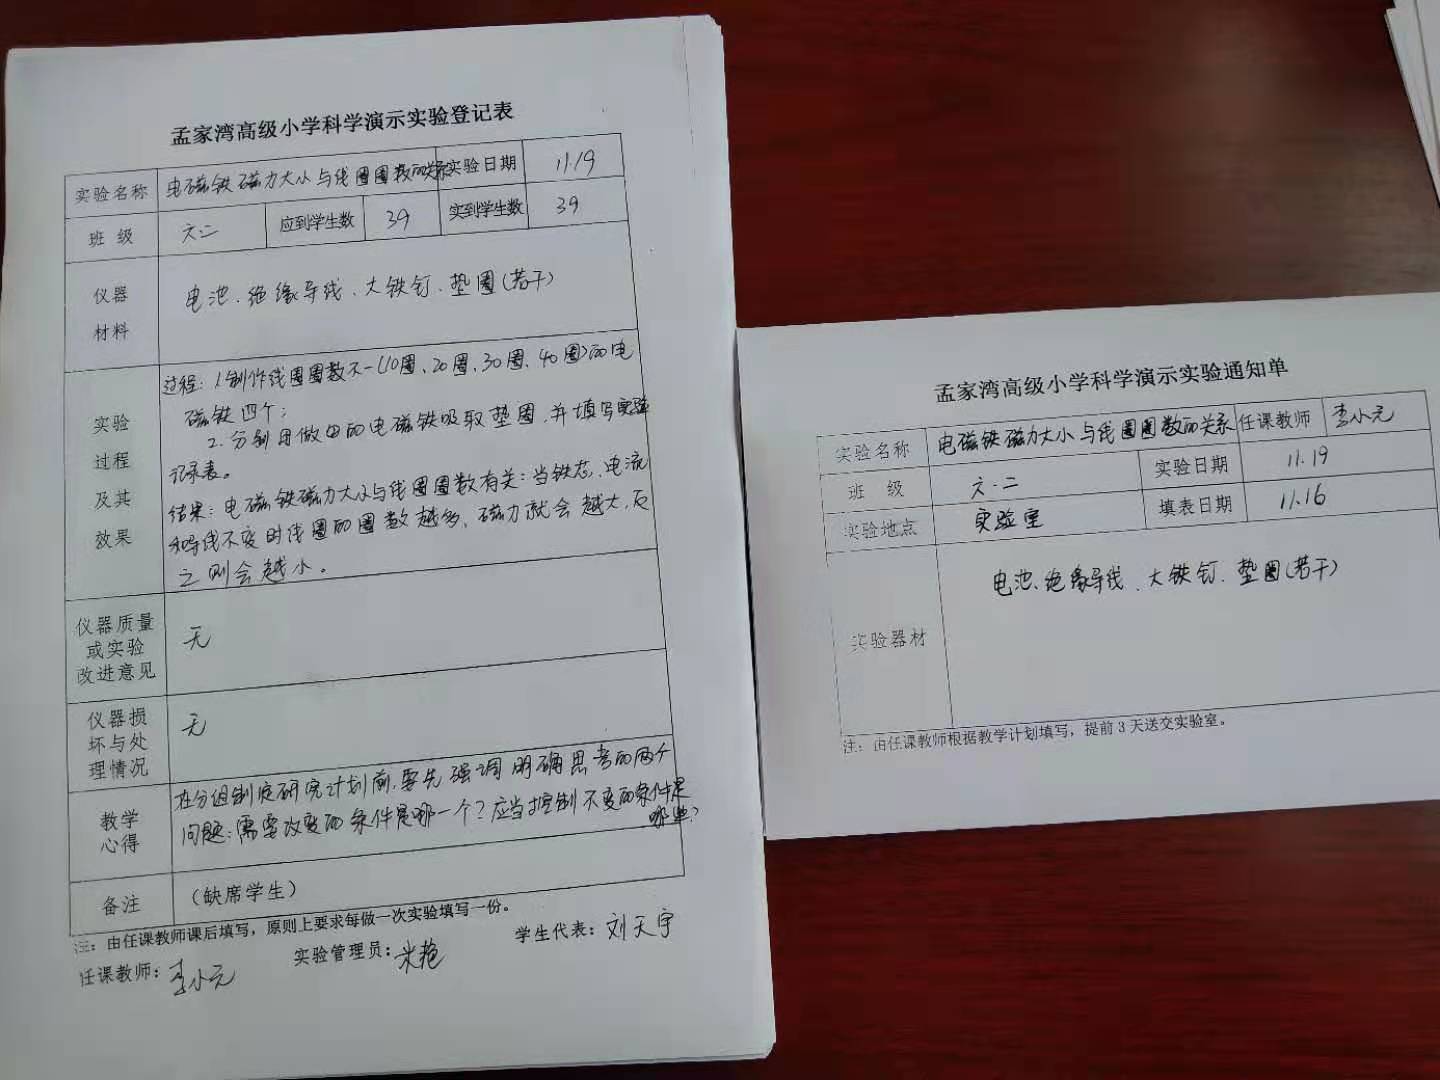 孟家湾高级小学科学演示实验登记表
实验名称 电磁铁磁力大小与线圈圈数的关系 实验日期 11.19
班级 六.二 应到学生数 39 实到学生数 39
仪器
材料
电池、绝缘导线、大铁钉、垫圈(若干)
实验
过程
及其
效果
过程：1.制作线圈圈数不一(10圈、20圈、30圈、40圈)的电
磁铁四个；
2.分别用做出的电磁铁吸取垫圈，并填写实验
记录表。
结果：电磁铁磁力大小与线圈圈数有关：当铁芯、电流
和导线不变时线圈的圈数越多、磁力就会越大，反
之则会越小。
仪器质量
或实验
改进意见
无
仪器损
坏与处
理情况
无
教学
心得
在分组制定研究计划前，要先强调明确思考的两个
问题：需要改变的条件是哪一个？应当控制不变的条件是
哪些？
备注 （缺席学生）
注：由任课教师课后填写，原则上要求每做一次实验填写一份。
任课教师：李小元 实验管理员：米艳 学生代表：刘天宇
孟家湾高级小学科学演示实验通知单
实验名称 电磁铁磁力大小与线圈圈数的关系 任课教师 李小元
班级 六.二 实验日期 11.19
实验地点 实验室 填表日期 11.16
实验器材
电池、绝缘导线、大铁钉、垫圈(若干)
注：由任课教师根据教学计划填写，提前3天送交实验室。